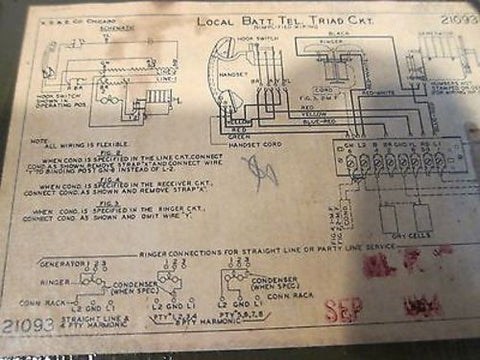 K.S.&S. CO. CHICAGO
LOCAL BATT. TEL. TRIAD CKT.
(SIMPLIFIED WIRING)
21093
SCHEMATIC
HOOK SWITCH
RINGER
GENERATOR
LINE-2
LINE-1
BR
HANDSET
CORD
FIG. 3, 2 M.F.
NUMBERS
STAMPED OR
FOR WIRING
HOOK SWITCH
SHOWN IN
OPERATING POS.
RED-WHITE
RED
YELLOW
BLUE-RED
RED
GREEN
HANDSET CORD
NOTE:
ALL WIRING IS FLEXIBLE.
FIG. 2
WHEN COND. IS SPECIFIED IN THE LINE CKT. CONNECT
COND. AS SHOWN, REMOVE STRAP "X" AND CONNECT WIRE
"Y" TO BINDING POST GN-B INSTEAD OF L-2.
FIG. 4
WHEN COND. IS SPECIFIED IN THE RECEIVER CKT.
CONNECT COND. AS SHOWN AND REMOVE STRAP "X".
FIG. 3
WHEN COND. IS SPECIFIED IN THE RINGER CKT.
CONNECT COND. AS SHOWN AND OMIT WIRE "Y".
GN L2 B BR GND YL RD L1
COND.
DRY CELLS
RINGER CONNECTIONS FOR STRAIGHT LINE OR PARTY LINE SERVICE
GENERATOR 1 2 3
1 2 3
1 2 3
RINGER
CONDENSER
(WHEN SPEC)
CONDENSER
(WHEN SPEC)
CONN. RACK
CONN. RACK
L2 GND L1
L2 GND L1
L2 GND L1
21093
STRAIGHT LINE &
4 PTY HARMONIC
PTY 1,2,3,4
PTY 5,6,7,8
8 PTY HARMONIC
SEP